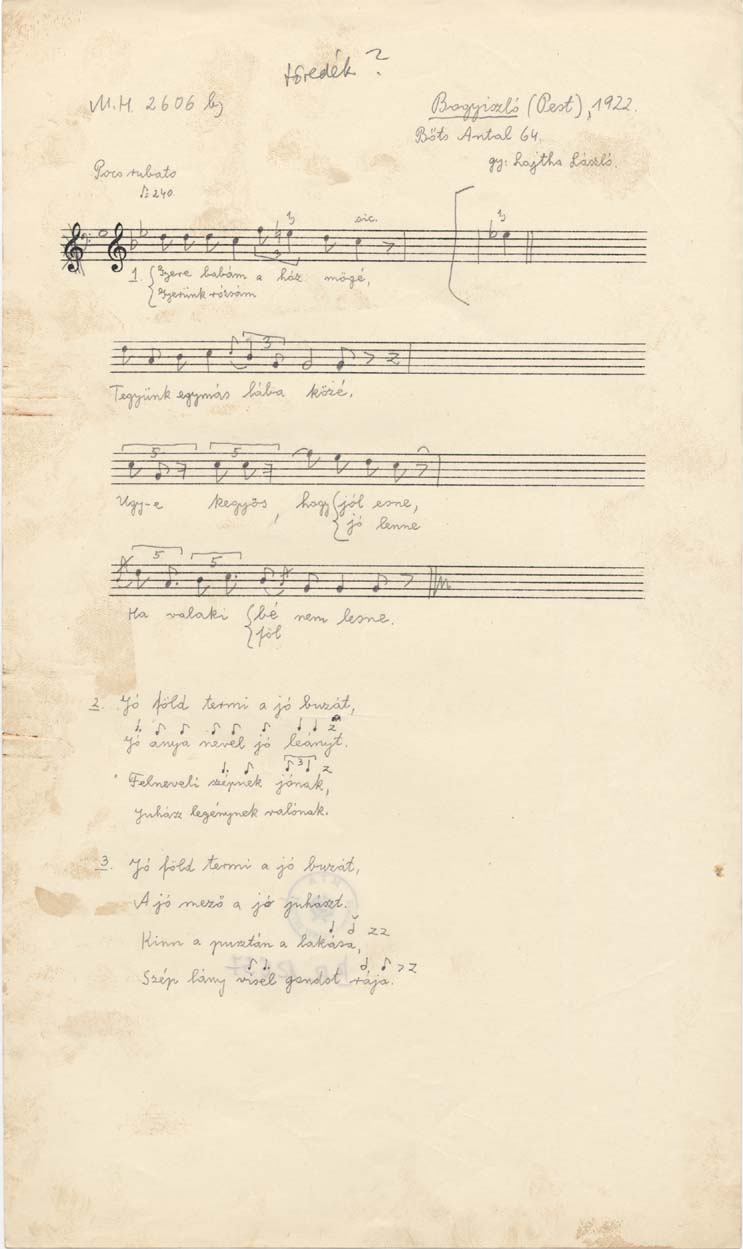 töredék ?
M.H. 2606 b)
Bogyiszló (Pest), 1922.
Bőts Antal 64.
gy: Lajtha László.
Poco rubato
♪= 240.
3
sic.
3
3
1. Gyere babám a ház mögé,
Gyerünk rózsám
3
Tegyünk egymás lába közé,
5 5
Ugy-e kegyös, hogy jól esne,
jó lenne
5 5
Ha valaki bé nem lesne.
föl
2. Jó föld termi a jó buzát,
Jó anya nevel jó leányt.
3
Felneveli szépnek jónak,
Juhász legénynek valónak.
3. Jó föld termi a jó buzát,
A jó mező a jó juhászt.
Kinn a pusztán a lakása,
Szép lány visel gondot rája.